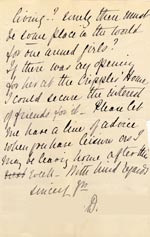 living? surely there must
be some place in the world
for one armed girls?
If there was any opening
for her at the Cripples' Home,
I could secure the interest
of friends for it - Please let
me have a line of advice
when you have leisure on
may be leaving home after this
week - With kind regards
sincerely yrs
D.